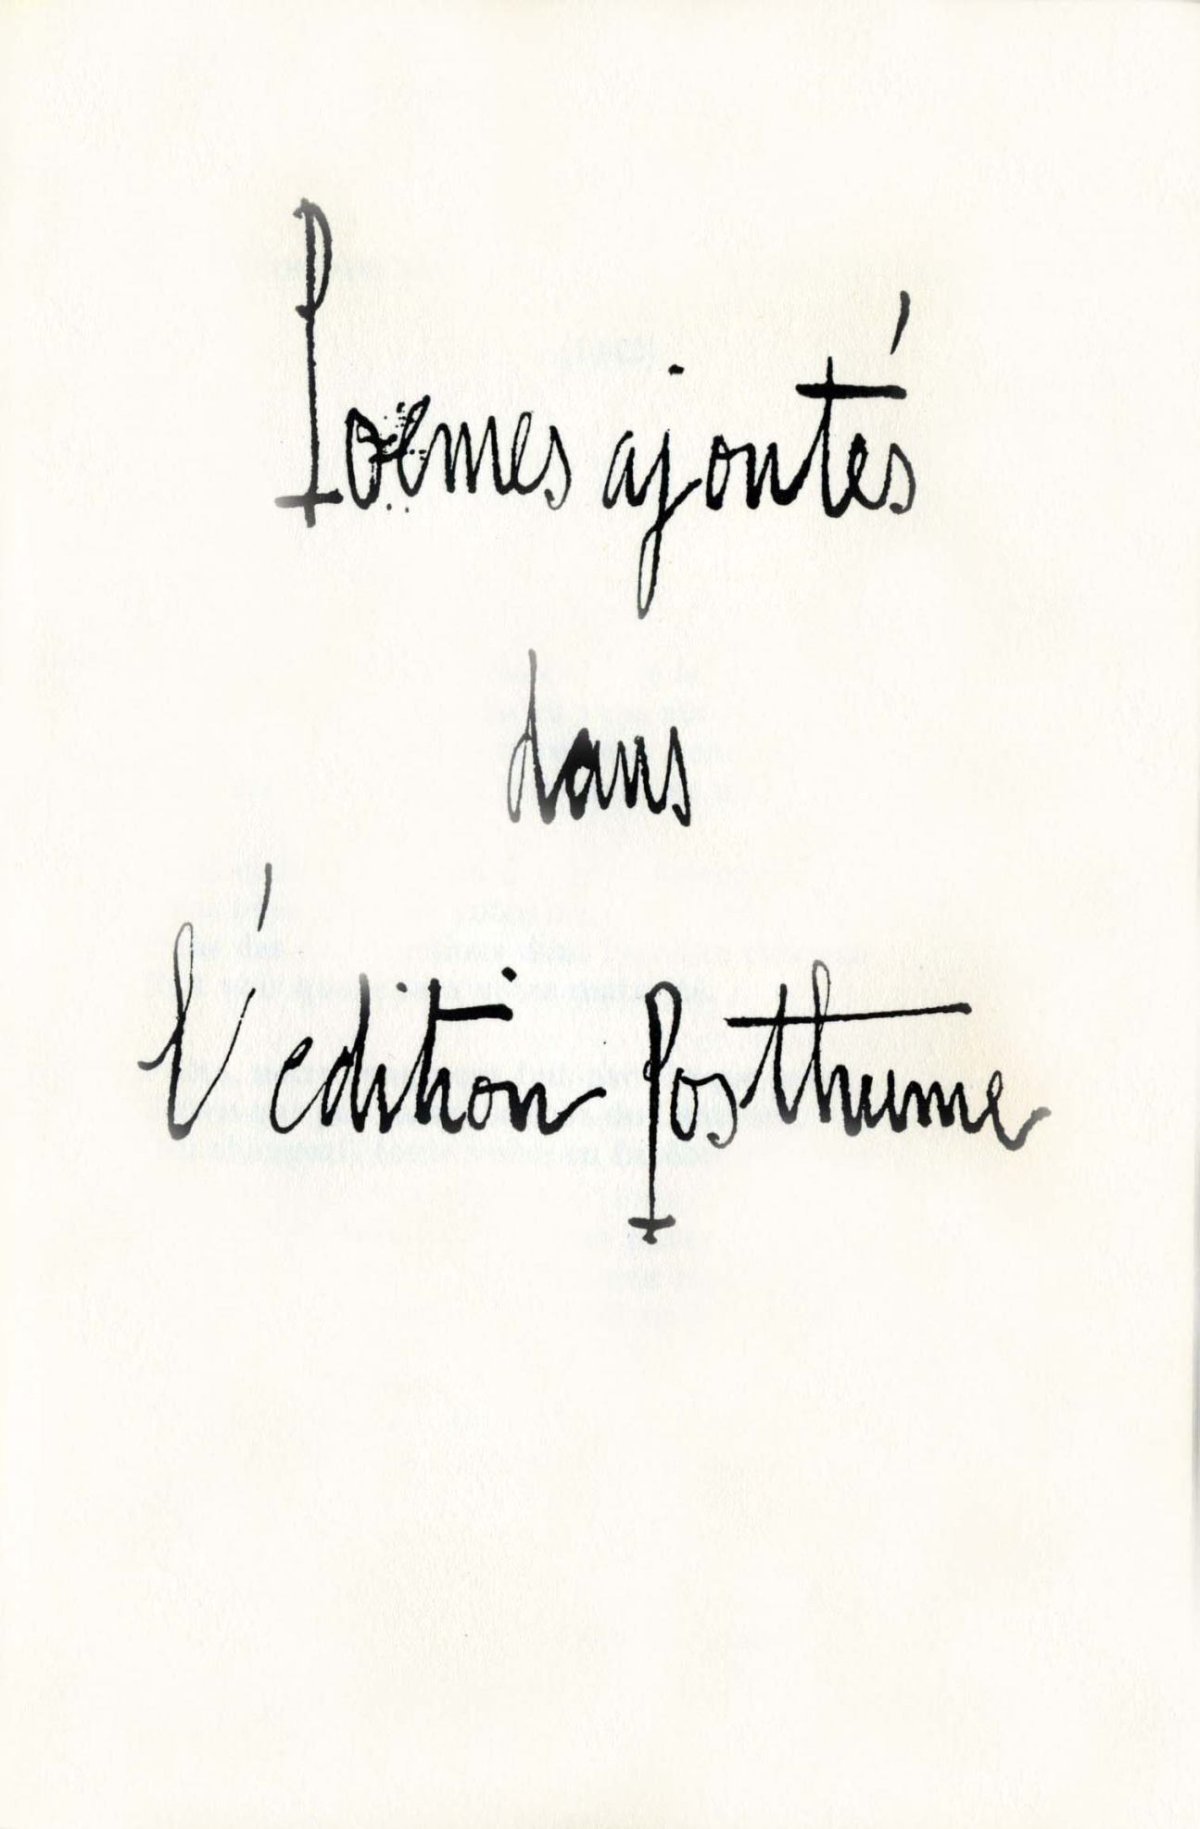 Poemes ajoutés
dans
l'édition Posthume